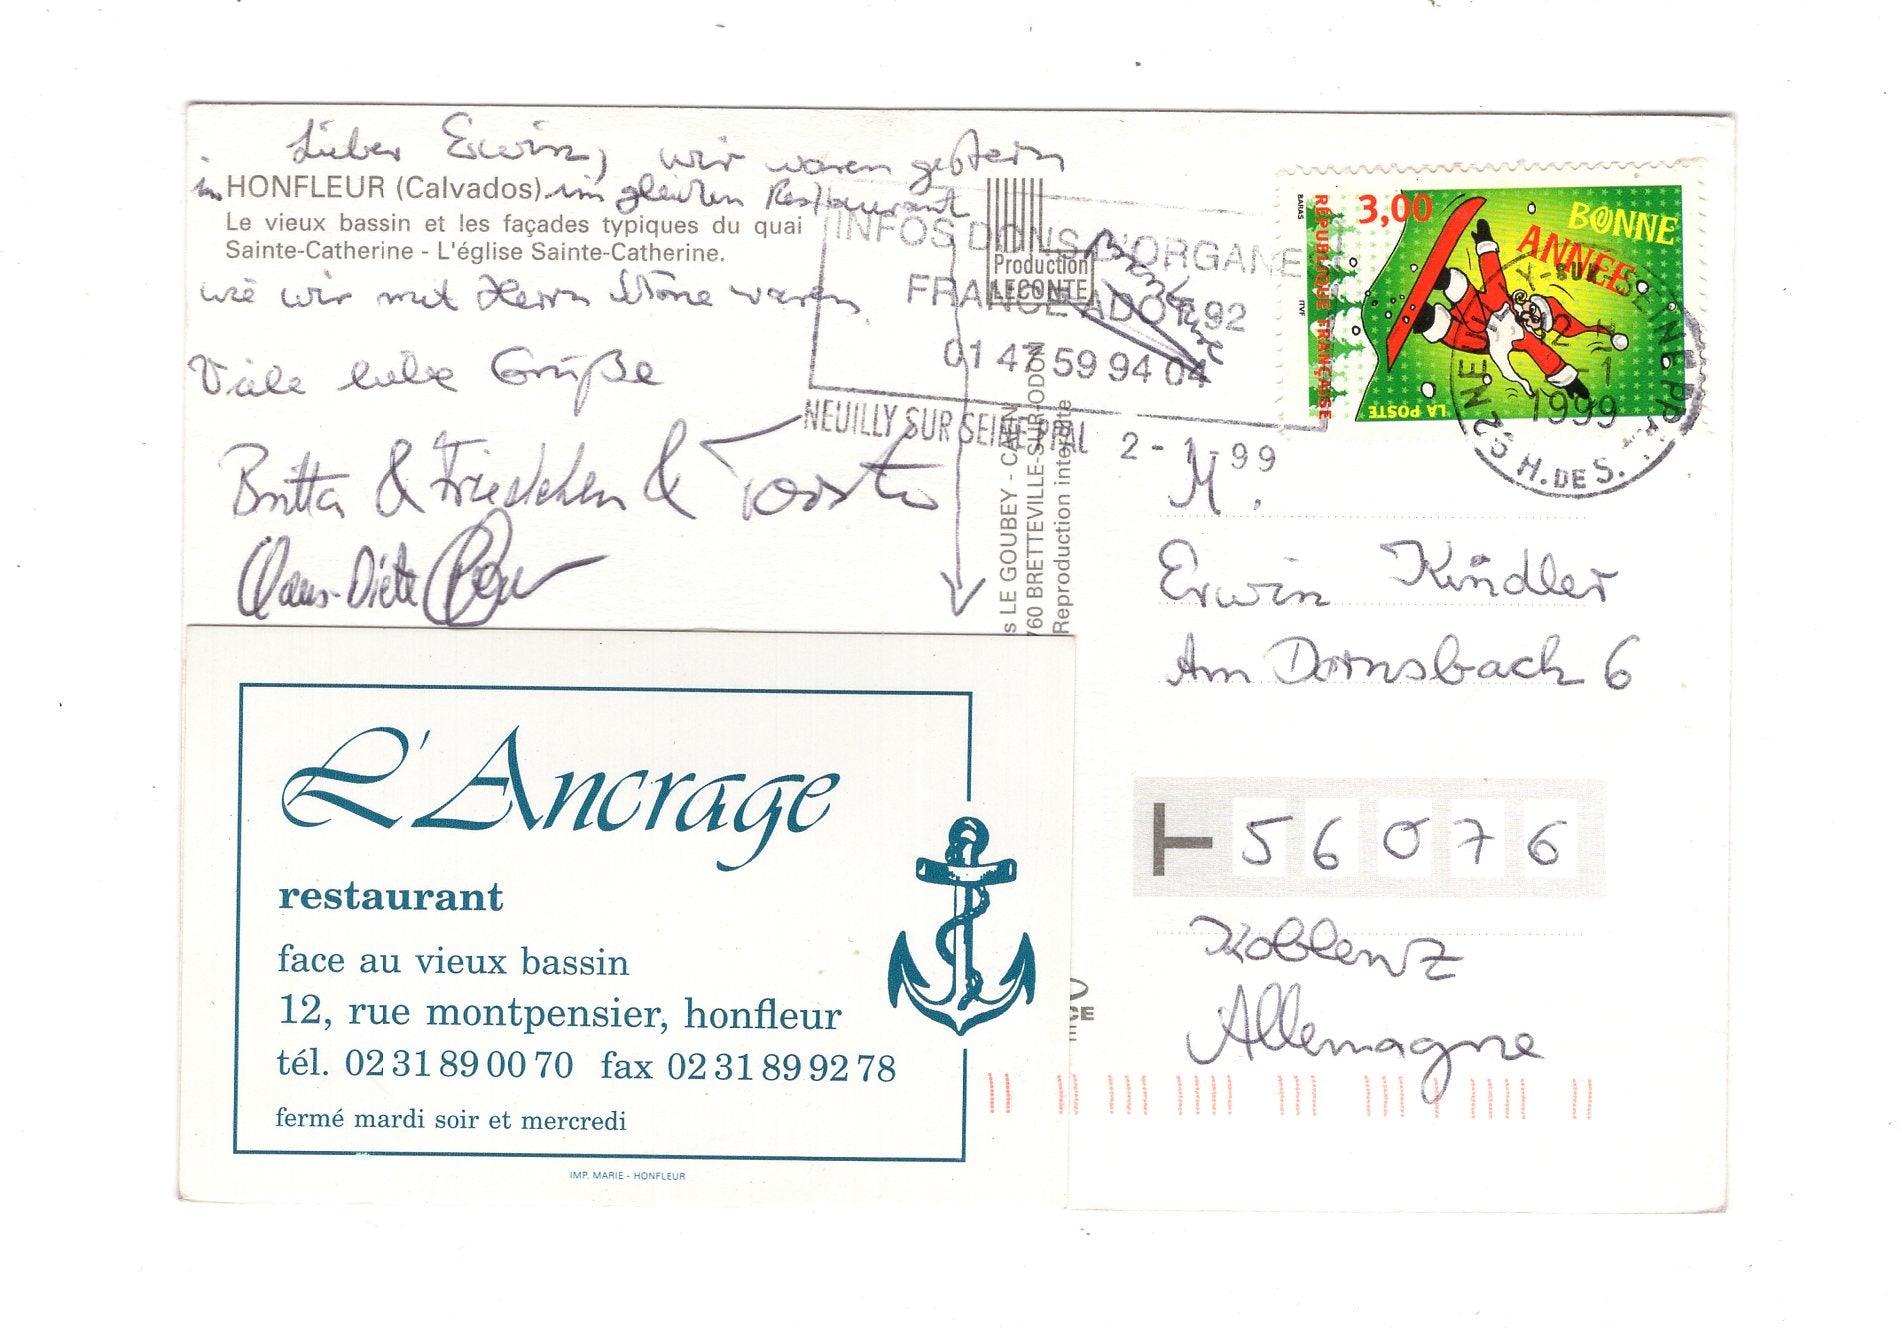 Lieber Erwin, wir waren gestern
in HONFLEUR (Calvados) im gleichen Restaurant
Le vieux bassin et les façades typiques du quai
Sainte-Catherine - L'église Sainte-Catherine.
wie wir mit Herrn waren.
Viele liebe Grüße
Britta & Friedchen &
Claus-Dieter
Production
LECONTE
s LE GOUBEY - CAEN
760 BRETTEVILLE-SUR-ODON
Reproduction interdite
INFOS DONS D'ORGANES
FRANCE ADOT 92
01 47 59 94 04
NEUILLY SUR SEINE PPAL
2-1-99
BARAS
ITVF
RÉPUBLIQUE FRANÇAISE
3,00
BONNE
ANNÉE
LA POSTE
92 NEUILLY-SUR-SEINE PPAL
2-1
1999
H. DE S.
M.
Erwin Kindler
Am Dornsbach 6
T 56076
Koblenz
Allemagne
L'Ancrage
restaurant
face au vieux bassin
12, rue montpensier, honfleur
tél. 02 31 89 00 70 fax 02 31 89 92 78
fermé mardi soir et mercredi
IMP. MARIE - HONFLEUR